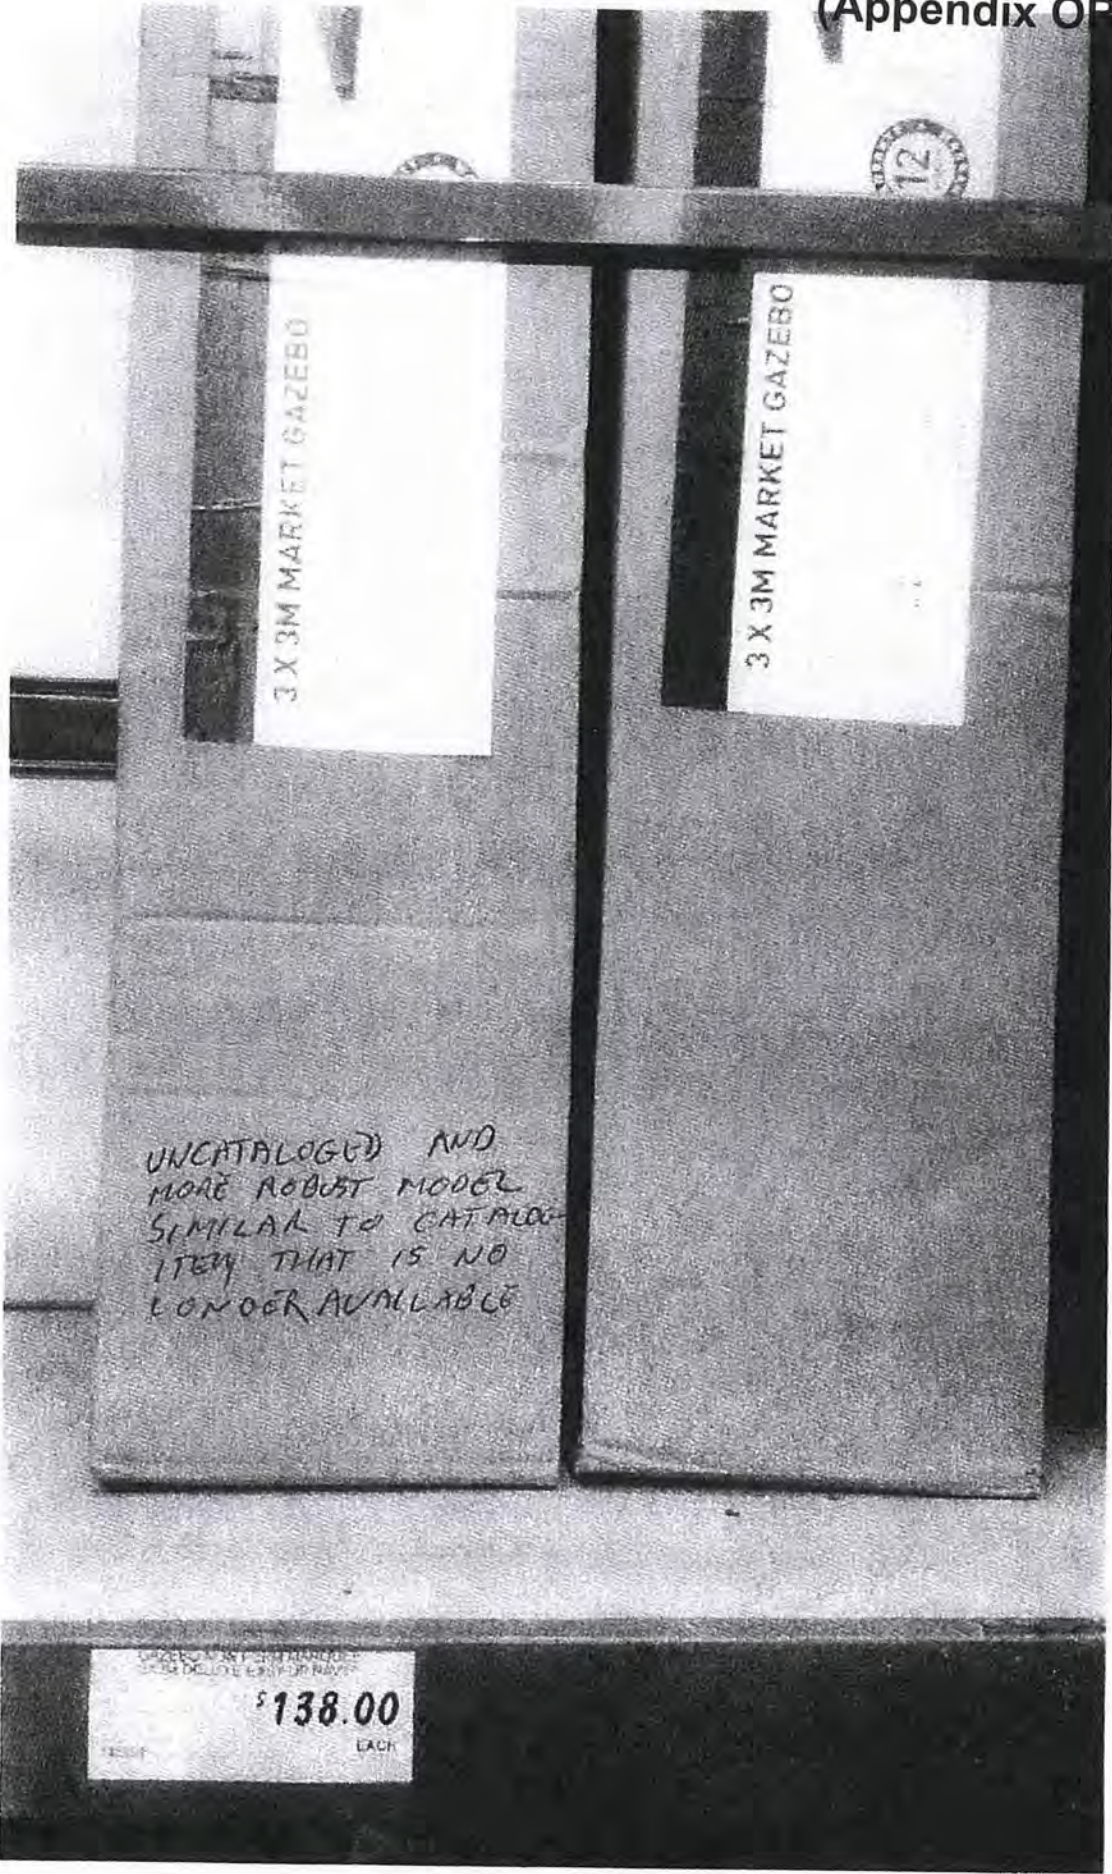 (Appendix OR
12
3 X 3M MARKET GAZEBO
3 X 3M MARKET GAZEBO
UNCATALOGED AND
MORE ROBUST MODEL
SIMILAR TO CATALOG
ITEM THAT IS NO
LONGER AVAILABLE
GAZEBO
$138.00
EACH